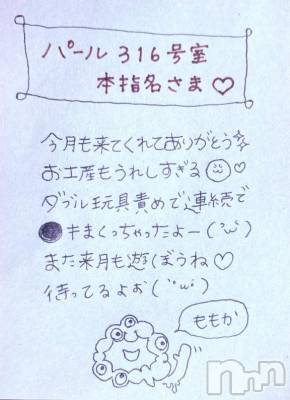 パール 316号室
本指名さま♡
今月も来てくれてありがとう
お土産もうれしすぎる♡
ダブル玩具責めで連続で
●キまくっちゃったよー( 'ω')
また来月も遊ぼうね♡
待ってるよぉ(  'ω')
ももか